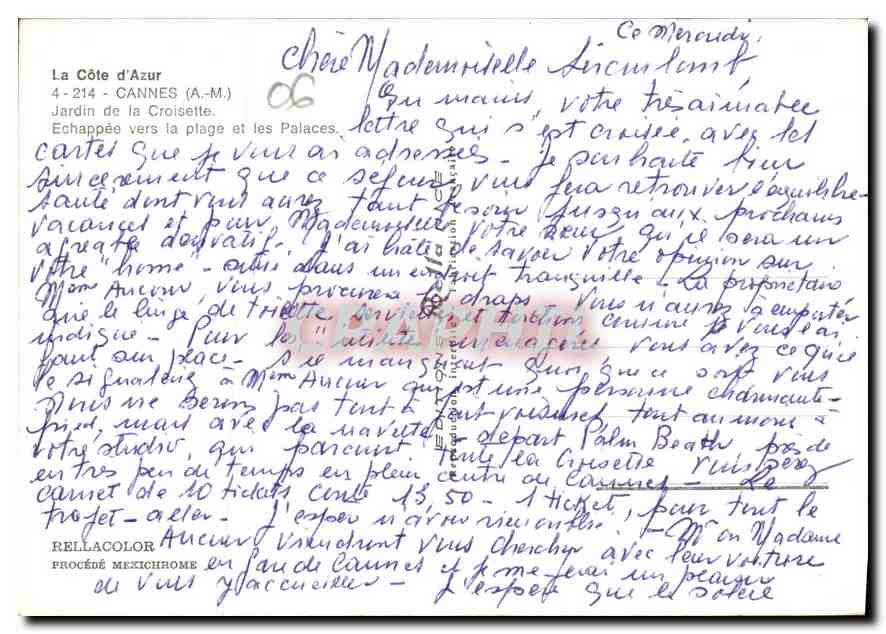 Ce Mercredi.
Chère Mademoiselle
La Côte d'Azur
4 - 214 - CANNES (A.-M.)
Jardin de la Croisette.
Echappée vers la plage et les Palaces.
06
En mains, votre très aimable
lettre qui s'est croisée avec les
cartes que je vous ai adressées - Je souhaite bien
sincèrement que ce séjour vous fera retrouver l'équilibre
santé dont vous aurez tant besoin jusqu'aux prochaines
vacances et pour Mademoiselle votre soeur qu'il sera un
agréable dérivatif. J'ai hâte de savoir votre opinion sur
votre "home" - situé dans un endroit tranquille - La propriétaire
Mme Aucour, vous procurera draps - Vous n'aurez à emporter
que le linge de toilette serviettes et torchons comme je vous l'ai
indiqué - Pour les "utilités" ménagères vous avez ce qu'il
faut sur place - S'il manquait quoi que ce soit vous
le signalerez à Mme Aucour qui est une personne charmante -
Nous ne serons pas tout à fait voisines, tout au moins à
pied, mais avec la navette - départ Palm Beach près de
votre studio, qui parcourt toute la Croisette vous serez
en très peu de temps en plein centre de Cannes - Le
carnet de 10 tickets coûte 13,50 - 1 ticket, pour tout le
trajet - aller - J'espère n'avoir rien oublié - Mr ou Madame
Aucour viendront vous chercher avec leur voiture
en gare de Cannes et je me ferai un plaisir
de vous y accueillir - J'espère que le soleil
RELLACOLOR
PROCÉDÉ MEXICHROME
EDITIONS Rella NICE
Reproduction interdite - Fabrication Française
CPAPHIL